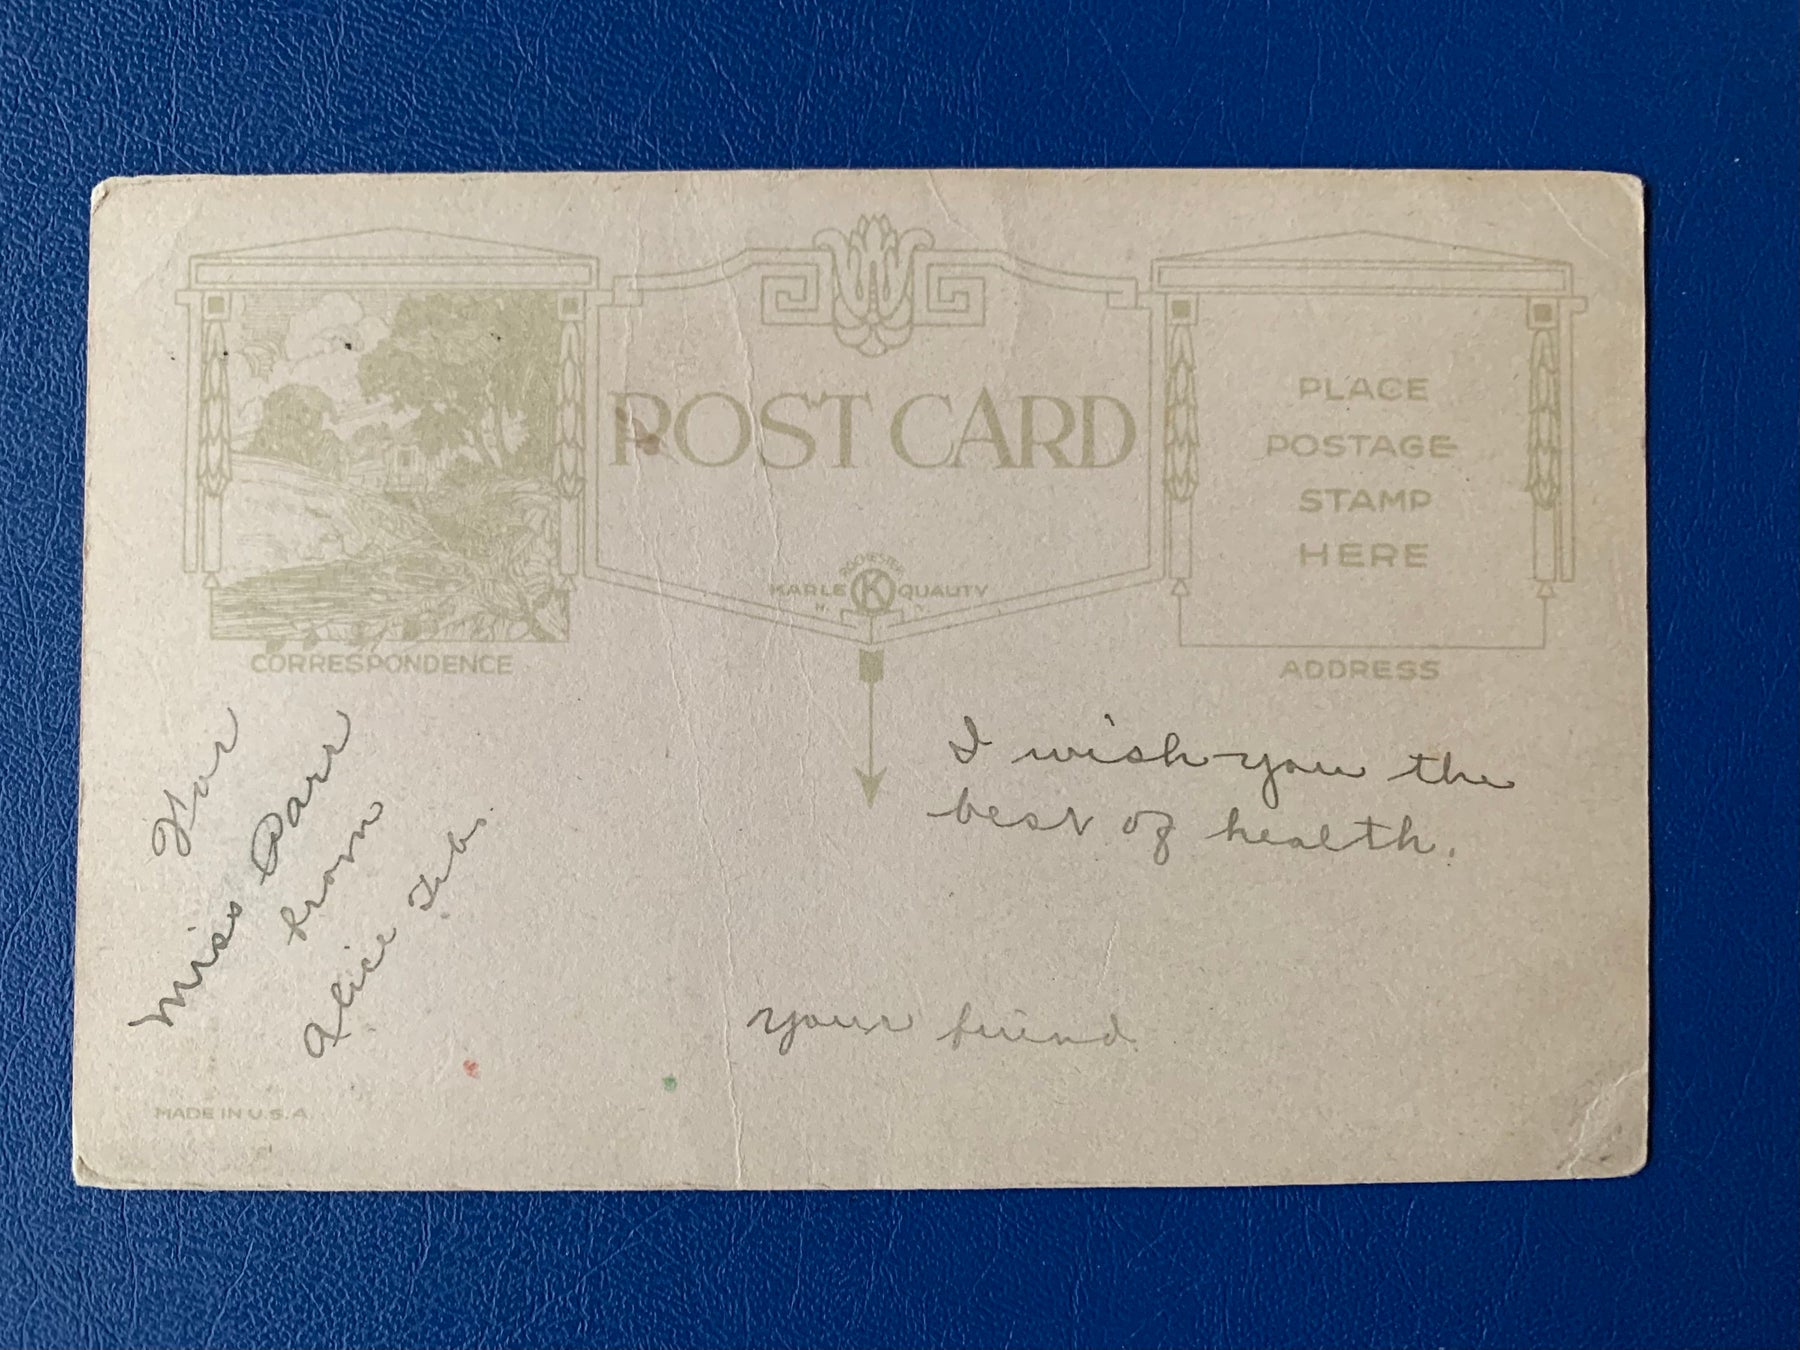 POST CARD
PLACE
POSTAGE
STAMP
HERE
ROCHESTER
KARLE K QUALITY
N. Y.
CORRESPONDENCE
ADDRESS
For
Miss Parr
from
Alice
I wish you the
best of health.
your friend
MADE IN U.S.A.